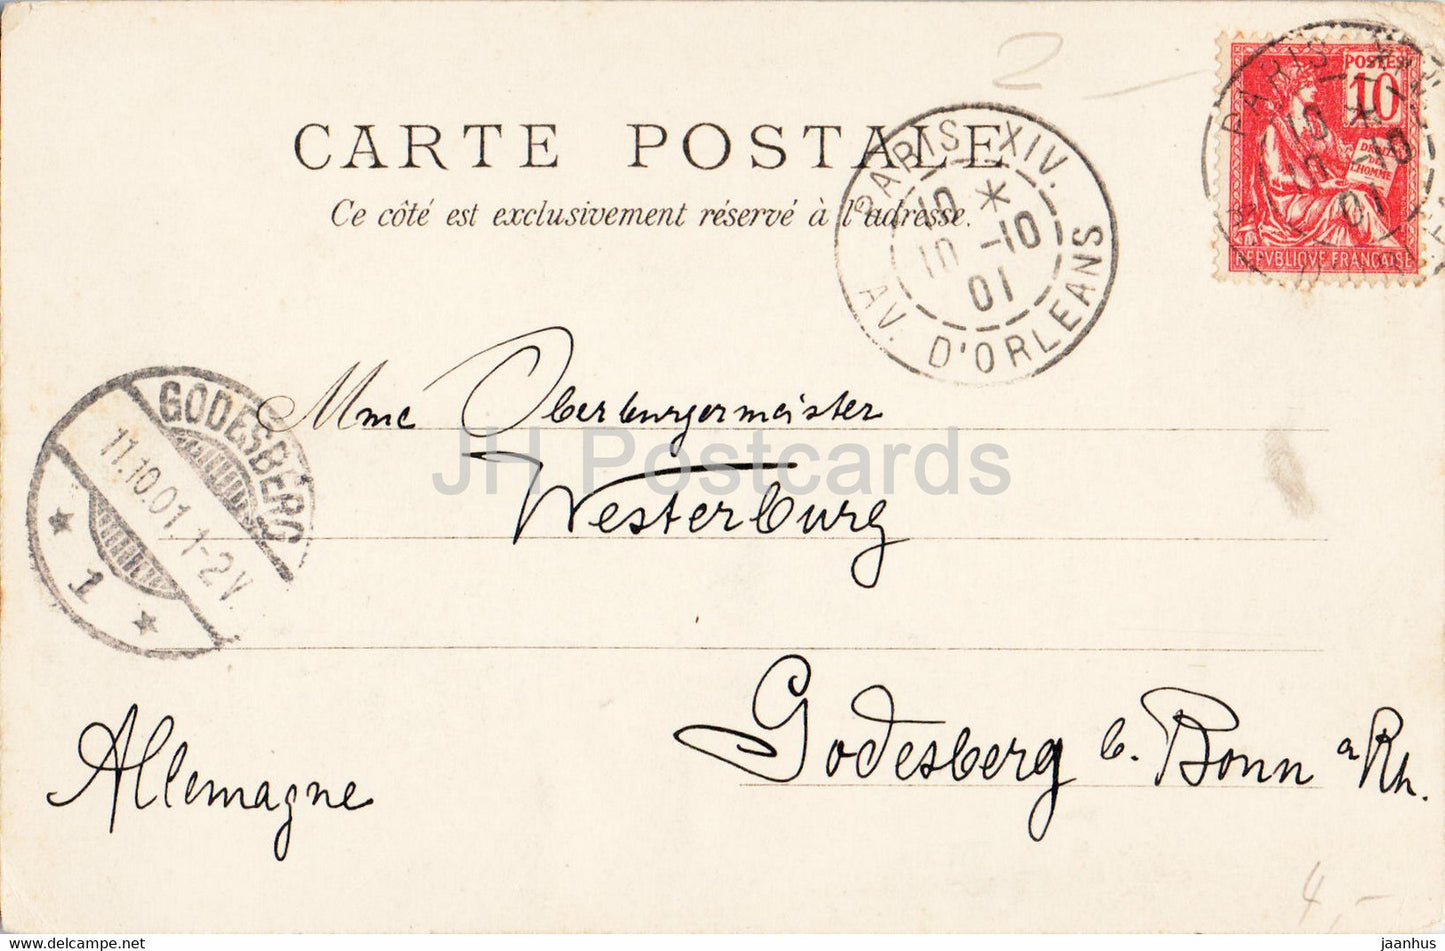 2
POSTES
10
DROITS DE L'HOMME
REPVBLIQVE FRANÇAISE
PARIS
10 *
10 -10
01
CARTE POSTALE
Ce côté est exclusivement réservé à l'adresse.
PARIS XIV.
10 *
10 -10
01
AV. D'ORLEANS
GODESBERG
11.10.01.1-2V.
* 1 *
Mme Oberburgermeister
Westerburg
Godesberg b. Bonn a Rh.
Allemagne
4,-
JH Postcards
www.delcampe.net
jaanhus